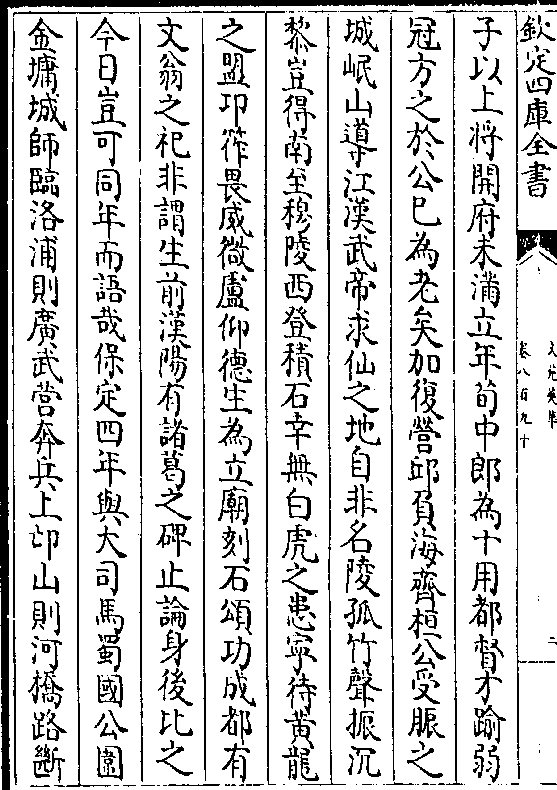 欽定四庫全書
文苑英華
卷八百九十
二
子以上将開府未滿立年荀中郎為十用都督才踰弱
冠方之於公已為老矣加復營邱負海齊桓公受脤之
城岷山導江漢武帝求仙之地自非名陵孤竹聲振沉
黎豈得南至穆陵西登積石幸無白虎之患寧待黄龍
之盟卭筰畏威微盧仰德生為立廟刻石頌功成都有
文翁之祀非謂生前漢陽有諸葛之碑止論身後比之
今日豈可同年而語哉保定四年與大司馬蜀國公圍
金墉城師臨洛浦則廣武營奔兵上邙山則河橋路斷